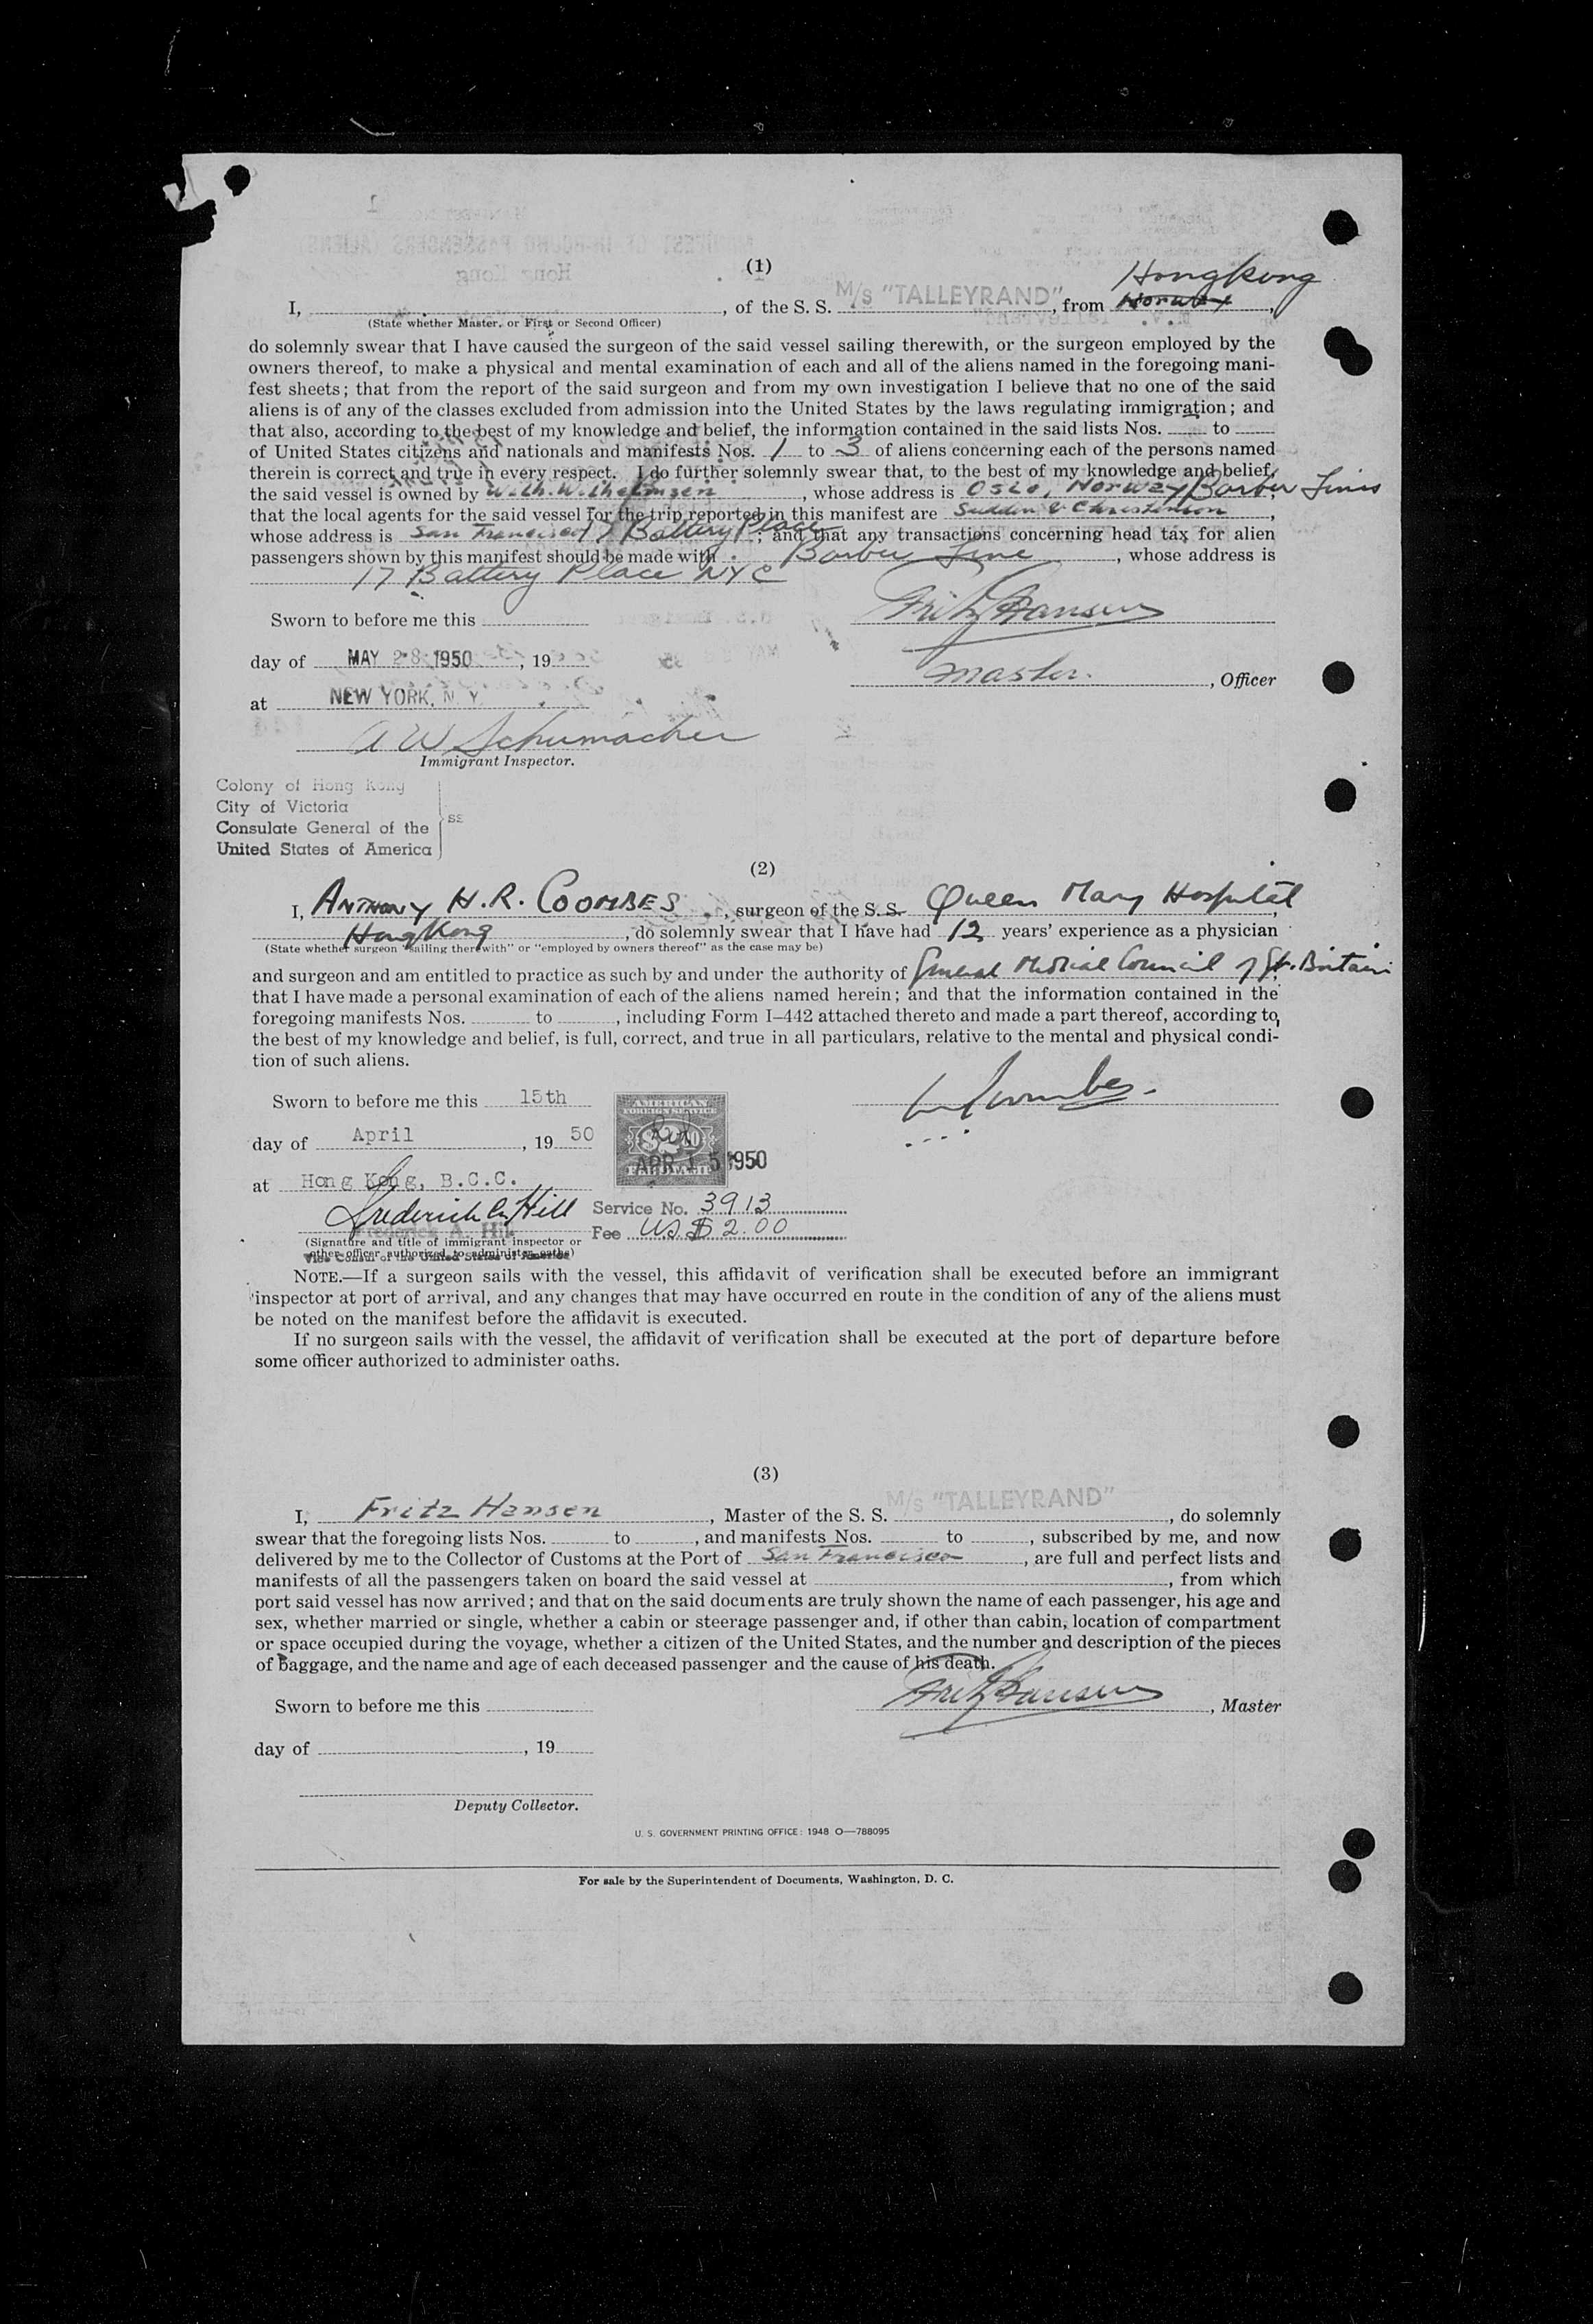 (1)
Hongkong
I, , of the S. S. M/s "TALLEYRAND", from Norway,
(State whether Master, or First or Second Officer)
do solemnly swear that I have caused the surgeon of the said vessel sailing therewith, or the surgeon employed by the
owners thereof, to make a physical and mental examination of each and all of the aliens named in the foregoing mani-
fest sheets; that from the report of the said surgeon and from my own investigation I believe that no one of the said
aliens is of any of the classes excluded from admission into the United States by the laws regulating immigration; and
that also, according to the best of my knowledge and belief, the information contained in the said lists Nos. to
of United States citizens and nationals and manifests Nos. 1 to 3 of aliens concerning each of the persons named
therein is correct and true in every respect. I do further solemnly swear that, to the best of my knowledge and belief,
the said vessel is owned by Wilh. Wilhelmsen, whose address is Oslo, Norway; Barber Lines
that the local agents for the said vessel for the trip reported in this manifest are Sudden & Christenson,
whose address is San Francisco 17 Battery Place; and that any transactions concerning head tax for alien
passengers shown by this manifest should be made with Barber Line, whose address is
17 Battery Place NYC
Sworn to before me this
Fritz Hansen
day of MAY 28 1950, 19
Master, Officer
at NEW YORK, N. Y.
A W Schumacher
Immigrant Inspector.
Colony of Hong Kong
City of Victoria
Consulate General of the
United States of America
SS
(2)
I, ANTHONY H.R. COOMBES, surgeon of the S. S. Queen Mary Hospital,
Hong Kong, do solemnly swear that I have had 12 years' experience as a physician
(State whether surgeon "sailing therewith" or "employed by owners thereof" as the case may be)
and surgeon and am entitled to practice as such by and under the authority of General Medical Council of Gt. Britain
that I have made a personal examination of each of the aliens named herein; and that the information contained in the
foregoing manifests Nos. to , including Form I–442 attached thereto and made a part thereof, according to
the best of my knowledge and belief, is full, correct, and true in all particulars, relative to the mental and physical condi-
tion of such aliens.
Sworn to before me this 15th
Coombes
day of April, 19 50
AMERICAN
FOREIGN SERVICE
$2.00
APR 15 1950
FEE STAMP
at Hong Kong, B.C.C.
Frederick A. Hill
Service No. 3913
Frederick A. Hill
Fee US $2.00
(Signature and title of immigrant inspector or
other officer authorized to administer oaths)
Vice Consul of the United States of America
NOTE.—If a surgeon sails with the vessel, this affidavit of verification shall be executed before an immigrant
inspector at port of arrival, and any changes that may have occurred en route in the condition of any of the aliens must
be noted on the manifest before the affidavit is executed.
If no surgeon sails with the vessel, the affidavit of verification shall be executed at the port of departure before
some officer authorized to administer oaths.
(3)
I, Fritz Hansen, Master of the S. S. M/s "TALLEYRAND", do solemnly
swear that the foregoing lists Nos. to , and manifests Nos. to , subscribed by me, and now
delivered by me to the Collector of Customs at the Port of San Francisco, are full and perfect lists and
manifests of all the passengers taken on board the said vessel at , from which
port said vessel has now arrived; and that on the said documents are truly shown the name of each passenger, his age and
sex, whether married or single, whether a cabin or steerage passenger and, if other than cabin, location of compartment
or space occupied during the voyage, whether a citizen of the United States, and the number and description of the pieces
of baggage, and the name and age of each deceased passenger and the cause of his death.
Sworn to before me this
Fritz Hansen, Master
day of , 19
Deputy Collector.
U. S. GOVERNMENT PRINTING OFFICE: 1948 O—788095
For sale by the Superintendent of Documents, Washington, D. C.